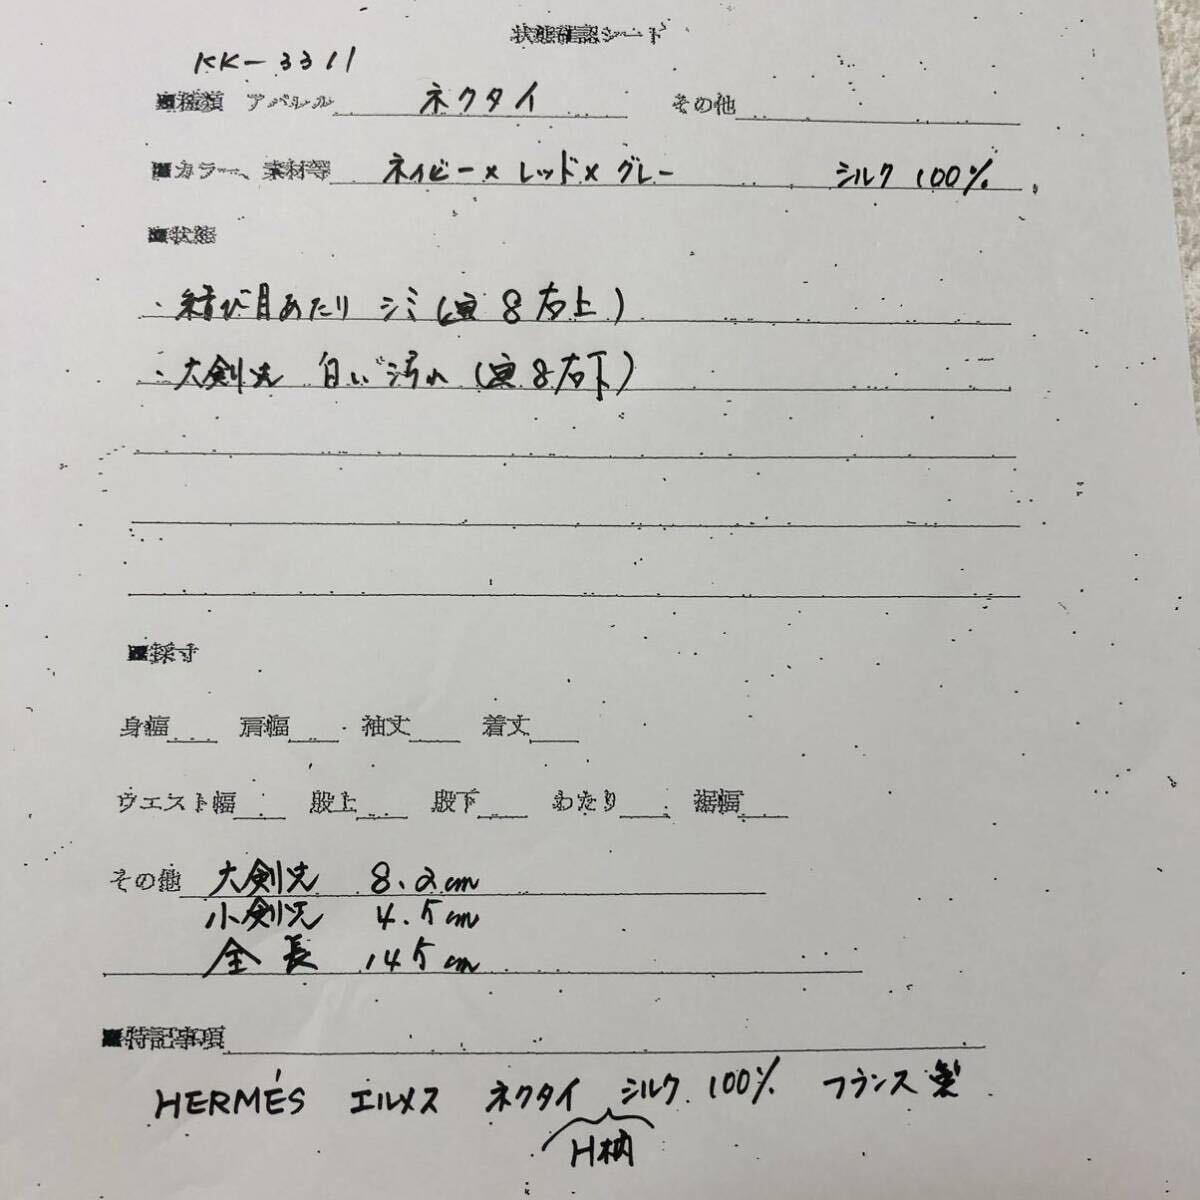 状態確認シート
KK-3311
■種類 アパレル ネクタイ その他
■カラー、素材等 ネイビー×レッド×グレー シルク 100%
■状態
・結び目あたり シミ (画 8 右上)
・大剣先 白い汚れ (画 8 右下)
■採寸
身幅 肩幅 袖丈 着丈
ウエスト幅 股上 股下 わたり 裾幅
その他 大剣先 8.2cm
小剣先 4.5cm
全長 145cm
■特記事項
HERMÉS エルメス ネクタイ シルク 100% フランス製
H柄